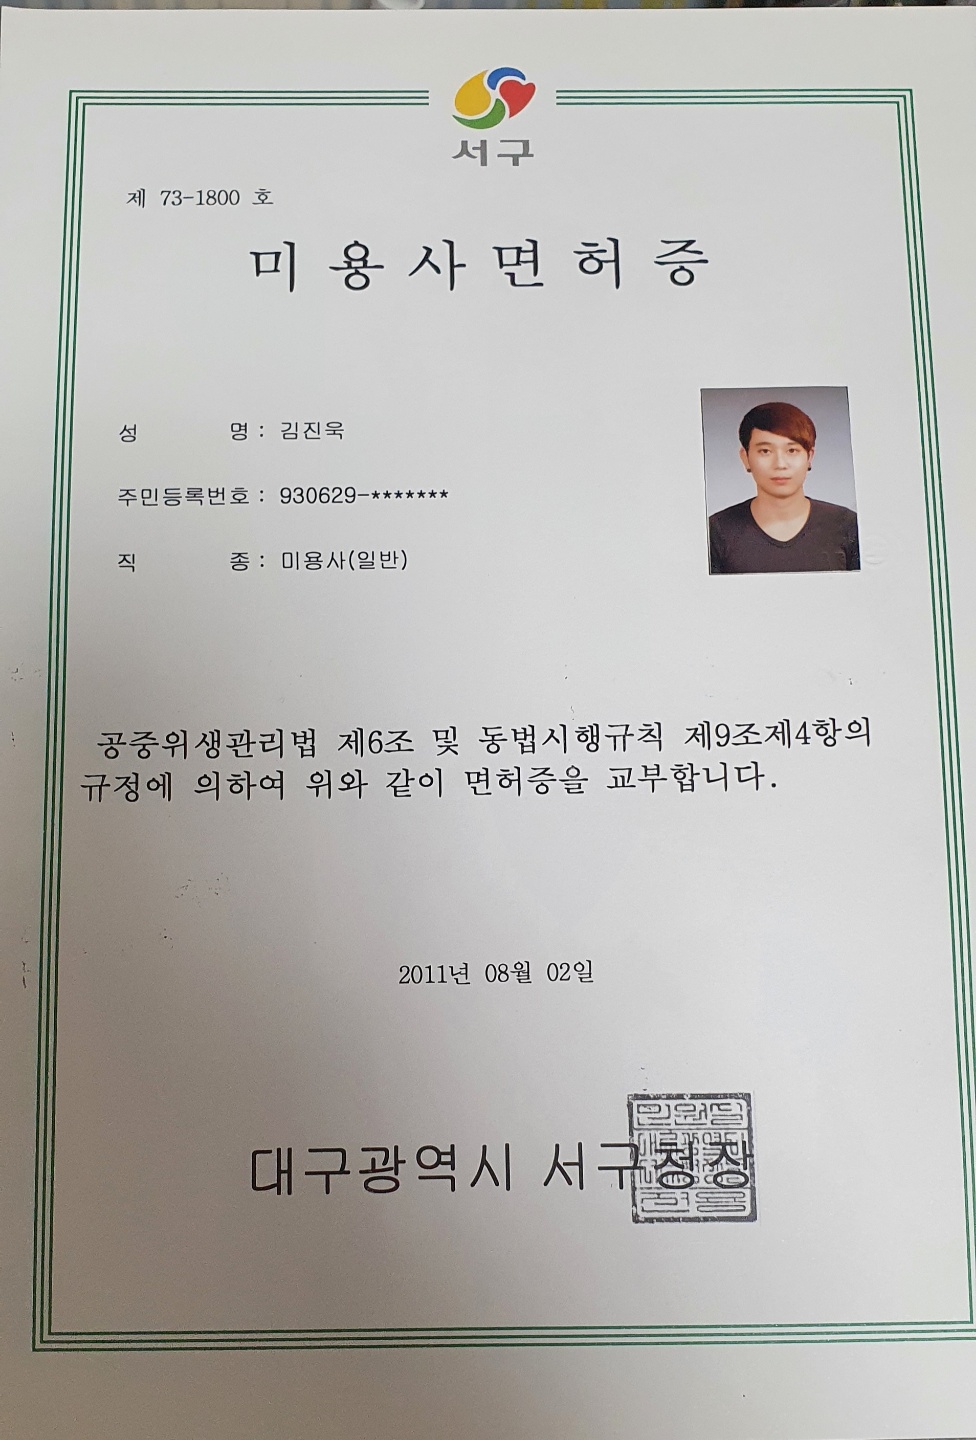 서구
제 73-1800 호
미용사면허증
성 명 : 김진욱
주민등록번호 : 930629-*******
직 종 : 미용사(일반)
공중위생관리법 제6조 및 동법시행규칙 제9조제4항의
규정에 의하여 위와 같이 면허증을 교부합니다.
2011년 08월 02일
대구광역시 서구청장